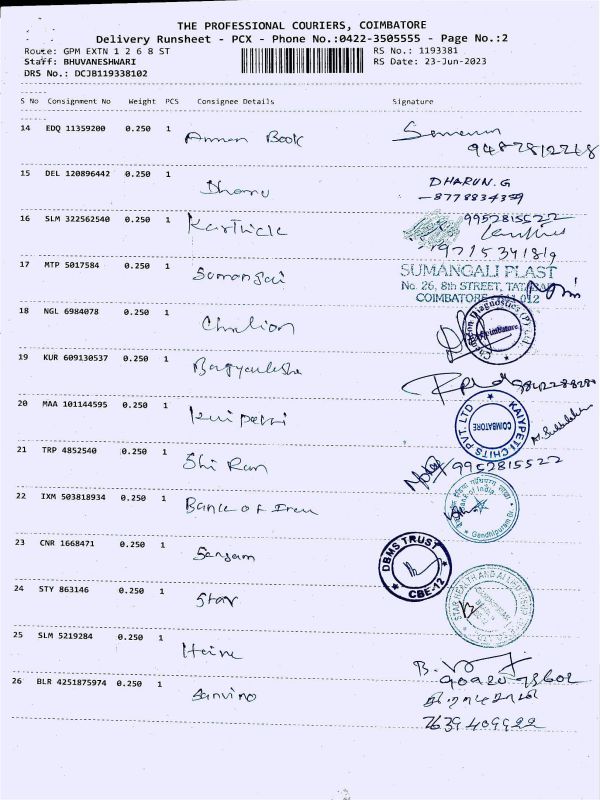 THE PROFESSIONAL COURIERS, COIMBATORE
Delivery Runsheet - PCX - Phone No.:0422-3505555 - Page No.:2
Route: GPM EXTN 1 2 6 8 ST RS No.: 1193381
Staff: BHUVANESHWARI RS Date: 23-Jun-2023
DRS No.: DCJB119338102
S No Consignment No Weight PCS Consignee Details Signature
14 EDQ 11359200 0.250 1 Annan Book
9487812268
15 DEL 120896442 0.250 1 DHARUN.G
16 SLM 322562540 0.250 1 Karthick 9952815522
9715341819
17 MTP 5017584 0.250 1 Sumangai SUMANGALI PLAST
No. 26, 8th STREET, TATABAD
COIMBATORE - 641 012
18 NGL 6984078 0.250 1 Chalion
19 KUR 609130537 0.250 1
20 MAA 101144595 0.250 1 KAIYPETI CHITS PVT. LTD
COIMBATORE
21 TRP 4852540 0.250 1 Shi Ram 9952815522
22 IXM 503818934 0.250 1 Bank of Bank of India
Gandhipuram Br
23 CNR 1668471 0.250 1 DBMS TRUST
CBE-12
24 STY 863146 0.250 1 Star STAR HEALTH AND ALLIED
25 SLM 5219284 0.250 1
26 BLR 4251875974 0.250 1
7639409922